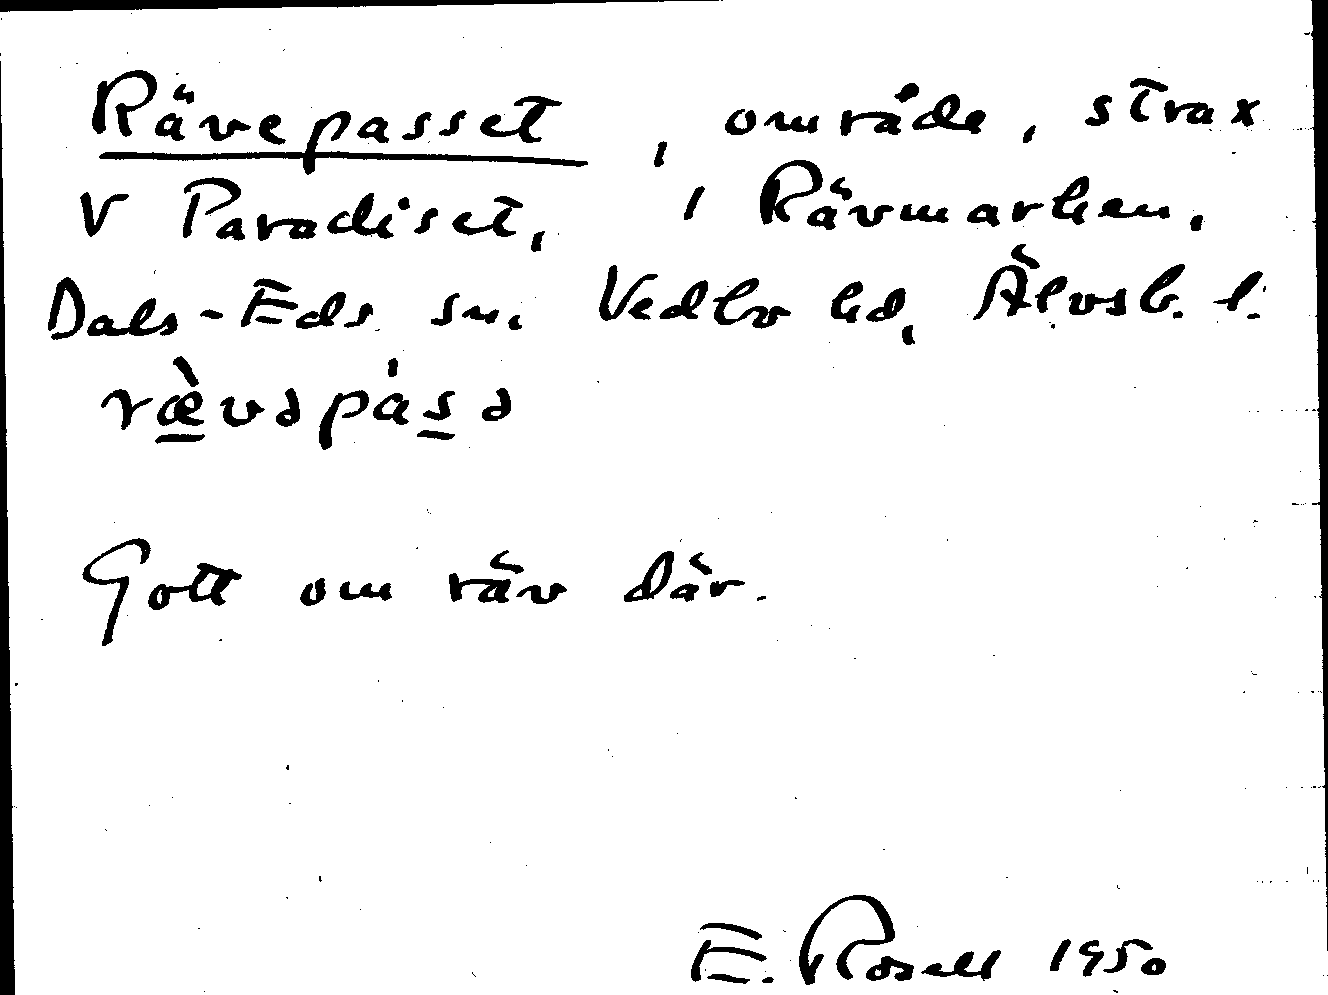 Rävepasset, område, strax
V Paradiset, i Rävmarken,
Dals-Eds sn. Vedbo hd, Älvsb. l.
ræ̀vəpásə
Gott om räv där.
E. Rosell 1950